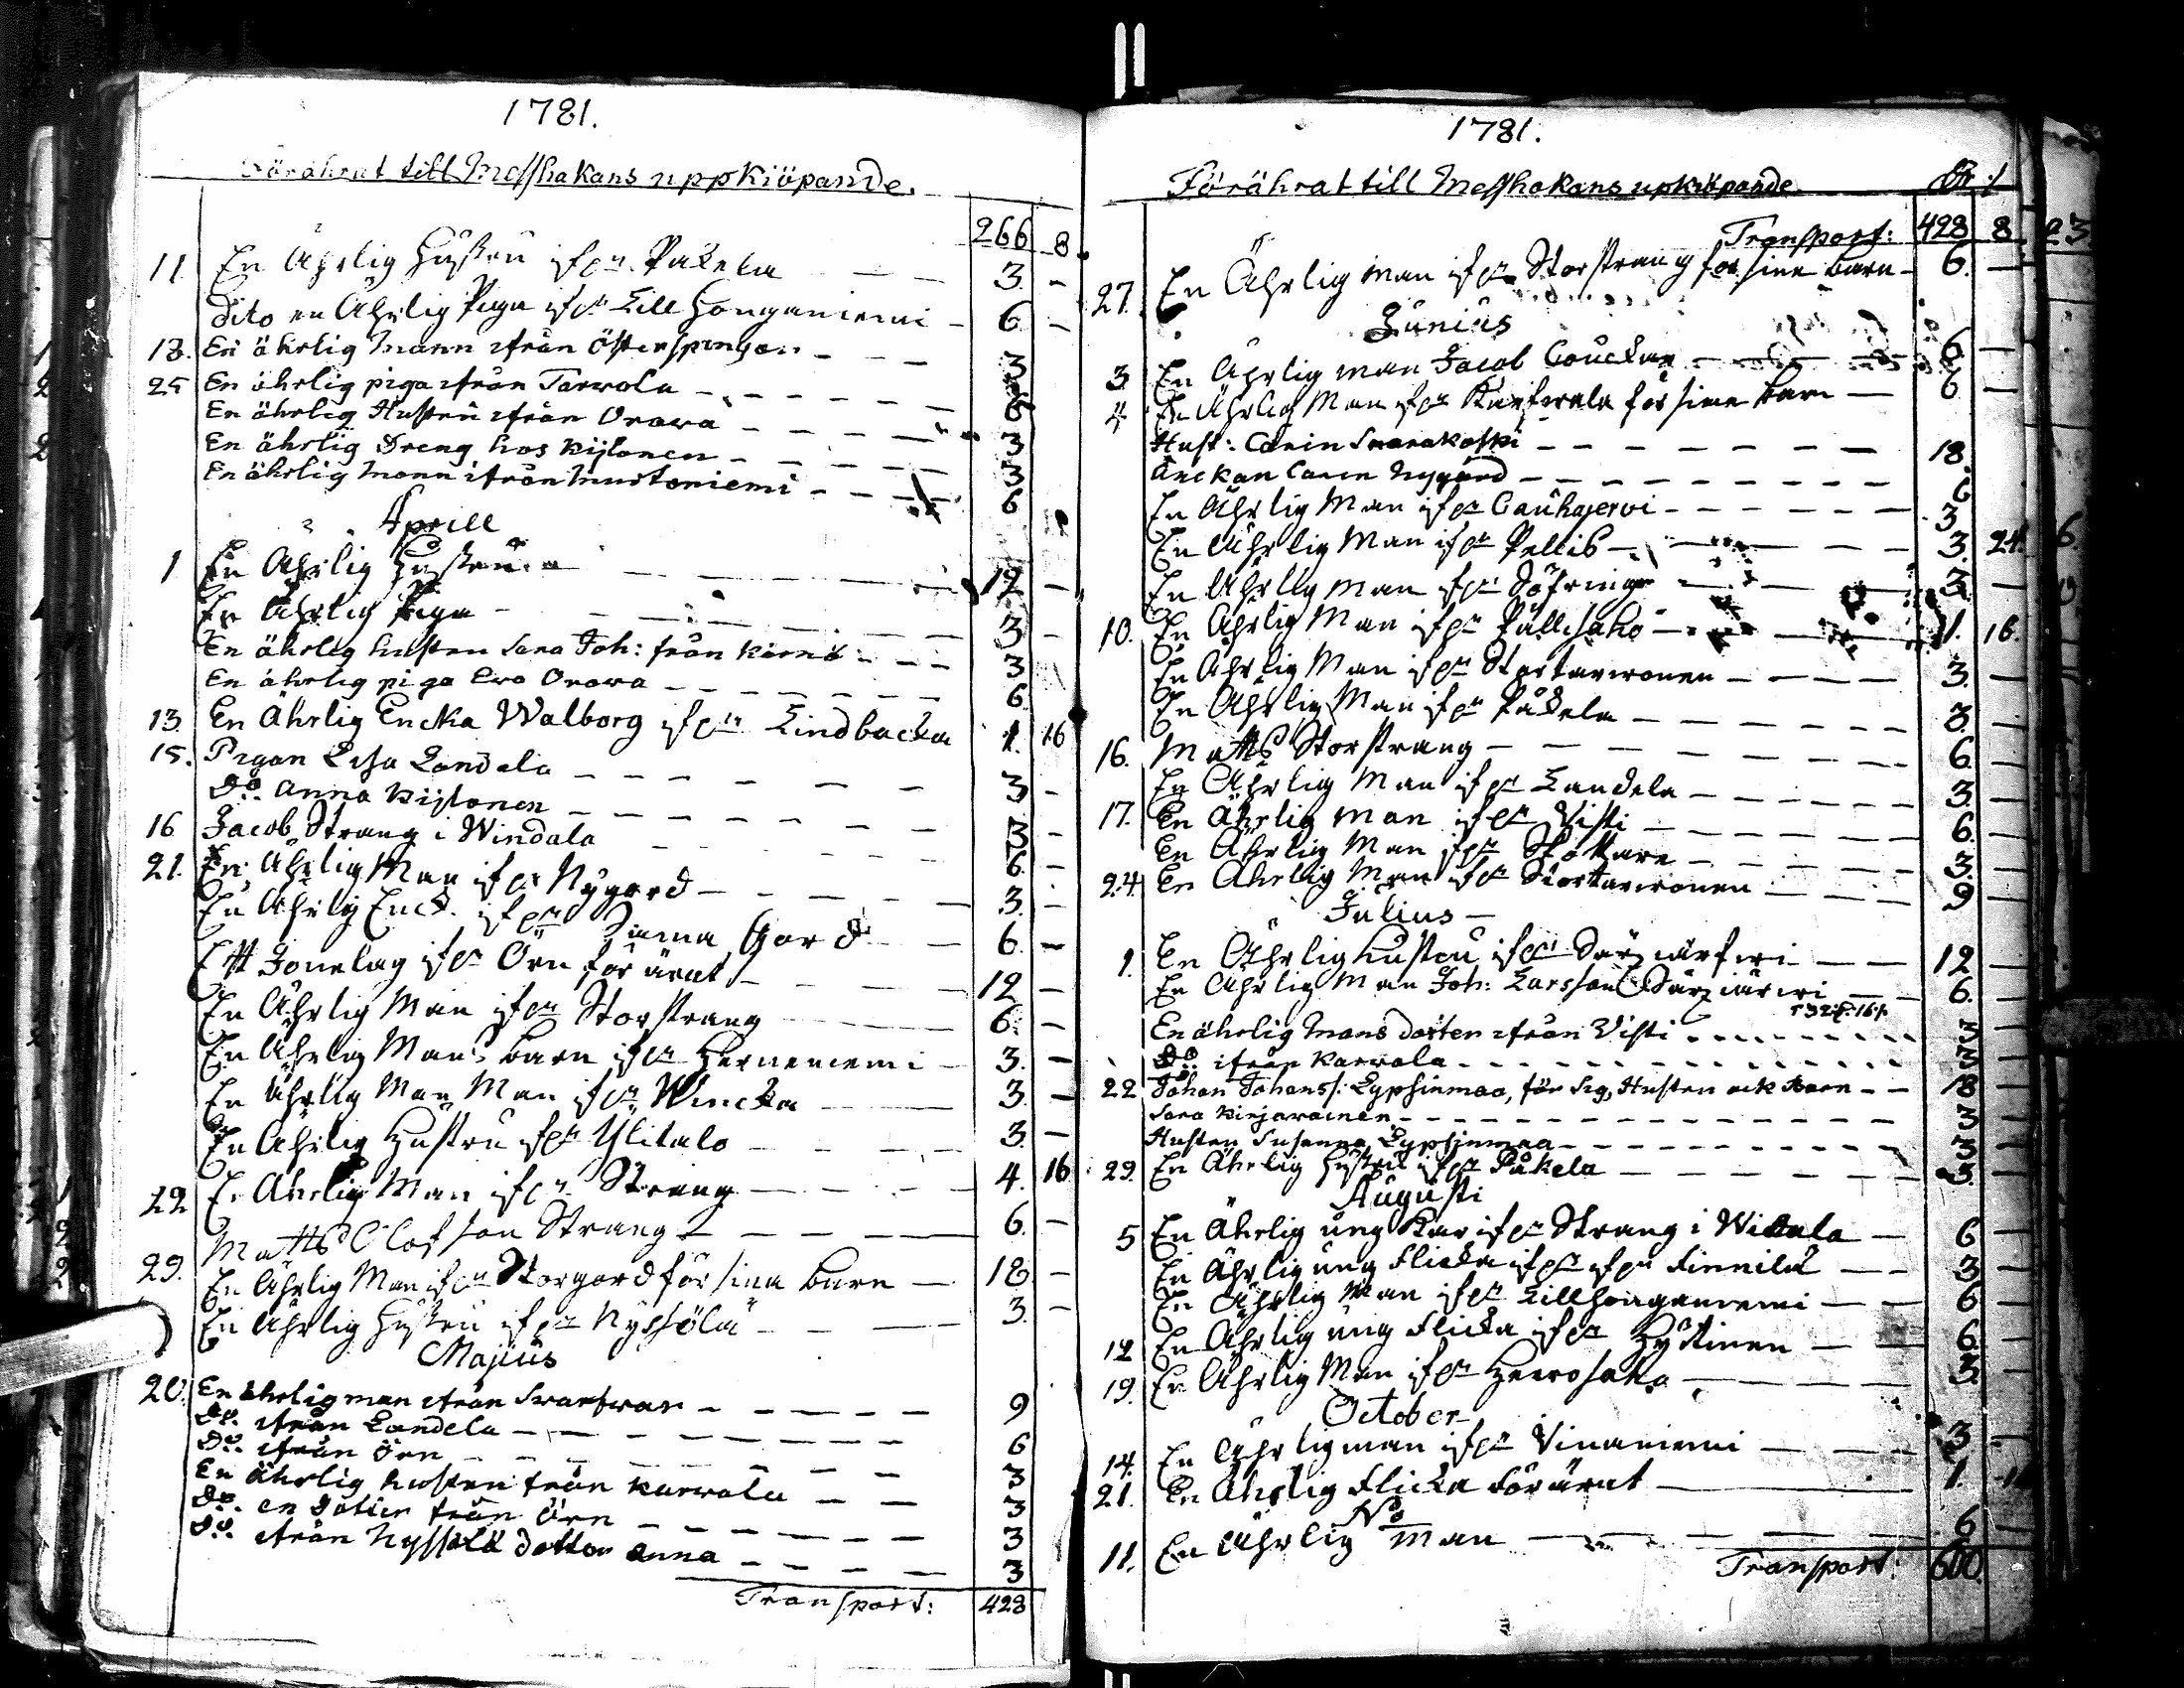 1781.
Förährat till Messhakans uppkiöpande.
266 8.
11 En Ährlig Hustru ifrån Påkela — 3. -
Dito en Ährlig Piga ifrån Lill Honganiemi - 6 -
18. En ährlig Mann ifrån Österspångon - - - 3
25 En ährlig piga ifrån Tarvola - - - - - - 6
En ährlig Hustru ifrån Orava - - - - 3
En ährlig Dreng hos Kijlonen - - - - - 3
En ährlig Mann ifrån Murtoniemi - - - - 6
Aprill
1 En Ährlig Hustru - - - - 12 -
En Ährlig Piga - - - - - 3 -
En ährlig hustru Sara Joh: från Kärnä - - - 3
En ährlig piga Eva Orava - - - - - - - 6
13. En Ährlig Encka Walborg ifrån Lindbacka 1. 16
15. Pigan Lisa Landala - - - - - - 3 -
Do. Anna Kijlonen - - - - - - - 3 -
16 Jacob Strang i Windala - - - - - - 6 -
21. En Ährlig Man ifrån Nygord - - - - - 3. -
En Ährlig Enck. ifrån Gamma Gord - - 6. -
Ett Jonelag ifrån Örn förärat - - - 12 -
En Ährlig Man ifrån Storstrang - - - 6. -
En Ährlig Mans Barn ifrån Herneniemi - 3. -
En Ährlig Man Man ifrån Wincka - - - 3. -
En Ährlig Hustru ifrån Ylitalo - - - - 3. -
22 En Ährlig Man ifrån Strang - - - - 4. 16
Matts Olofson Strang - - - - - 6. -
29. En Ährlig Man ifrån Storgord för sina Barn — 18 -
En Ährlig Hustru ifrån Nyssölä - - - - 3. -
Majius
20. En ährlig man ifrån Svartvar - - - - - 9
Do. ifrån Landela - - - - - - - - 6
Do. ifrån Örn - - - - - - - - 3
En ährlig hustru från Karvala - - 3
Do. en Dotter från Örn - - - - - - 3
Do. ifrån Nyssölä dotter Anna - - - - 3
Transport: 428
1781.
Förährat till Messhakans upkiöpande
Transport: 428 8
27. En Ährlig Man ifrån Storstrang för sine barn - 6. —
Junius
3. En Ährlig man Jacob Couckar - - - 6 —
4 En Ährlig Man ifrån Karfwala för sine barn — 6 —
Hust: Carin Svarakoski - - - - - - - 18.
Änckan Caren Nygård - - - - - - - - 6
En Ährlig Man ifrån Cauhajervi - - - - - - 3
En Ährlig Man ifrån Pellis - - - - 3. 24.
En Ährlig man ifrån Söfring - - - 3. —
10. En Ährlig Man ifrån Pällisaho - - - 1. 16.
En Ährlig Man ifrån Stortarvonen - - - - 3. —
En Ährlig Man ifrån Påkela - - - - - - - 3. —
16. Matts Storstrang - - - - - - - - 6. —
En Ährlig Man ifrån Landela - - - - - - 3. —
17. En Ährlig man ifrån Visti - - - - - - 6. —
En Ährlig Man ifrån Skottare - - - - - 3. —
24 En Ährlig Man ifrån Stortarvonen - - - 9 —
Julius -
1. En Ährlig Hustru ifrån Särjiärfwi — — 12 —
En Ährlig Man Joh: Larsson Särjiärwi — - 6. —
En ährlig Mans dotter ifrån Visti - - - - - - - 3
Do: ifrån Karvala - - - - - - - - - - 3
22 Johan Johanss: Lypsinmaa, för sig, Hustru ock Barn - - 18
Sara Kirjavainen - - - - - - - - - - 3
Hustru Susanna Lypsinmaa - - - - - - - - 3
29. En Ährlig Hustru ifrån Påkela - - - - - - 3.
Augusti
5 En Ährlig ung Kar ifrån Strang i Widala — 6 —
En Ährlig ung Flicka ifrån ifrån Finnilä — - 3 —
En Ährlig Man ifrån Lillhonganiemi — - 6 —
12 En Ährlig ung Flicka ifrån Hytinen — — 6. —
19. En Ährlig Man ifrån Herrosaho — — — 3.
October
14. En Ährlig man ifrån Vinaniemi — — — 3 —
21. En Ährlig Flicka Förärat — — 1.
No
11. En Ährlig man — — — — 6 —
Transport: 600.